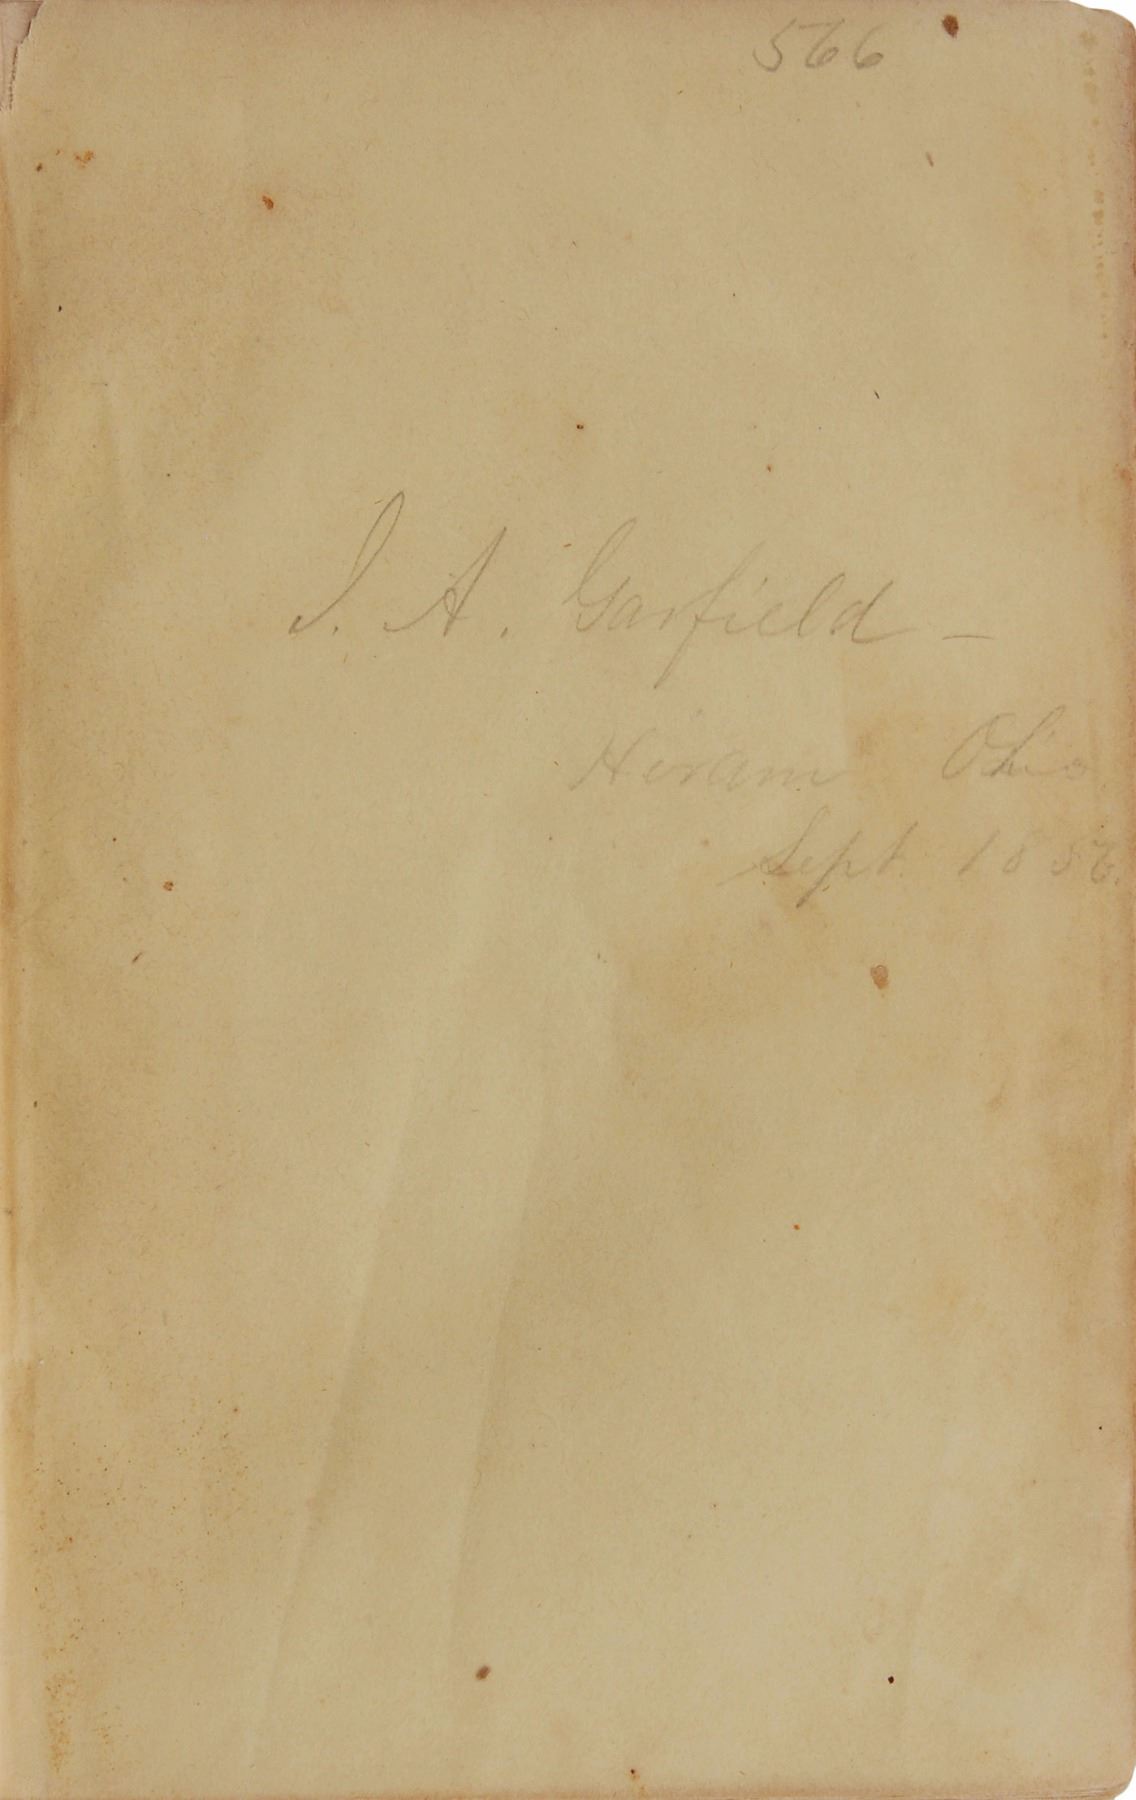 566
J. A. Garfield –
Hiram Ohio
Sept. 1856.